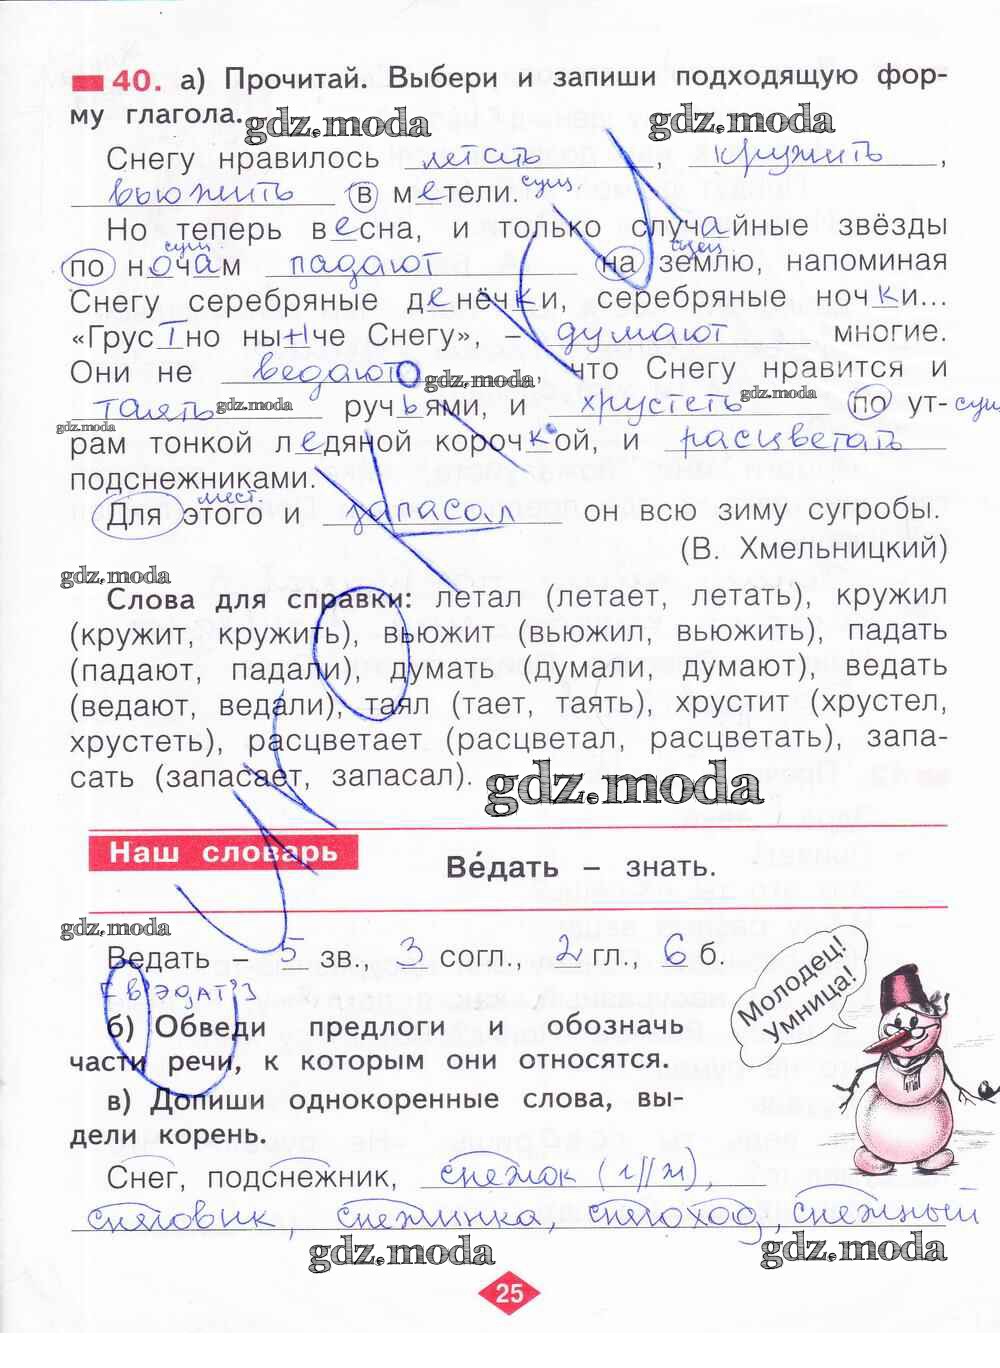 40. а) Прочитай. Выбери и запиши подходящую фор-
му глагола.
gdz.moda
gdz.moda
Снегу нравилось летать, кружить,
вьюжить в метели. сущ
Но теперь весна, и только случайные звёзды
сущ. сущ
по ночам падают на землю, напоминая
Снегу серебряные денёчки, серебряные ночки...
«Грустно нынче Снегу», – думают многие.
Они не ведают, что Снегу нравится и
gdz.moda
таять ручьями, и хрустеть по ут- сущ
gdz.moda gdz.moda
gdz.moda
рам тонкой ледяной корочкой, и расцветать
подснежниками.
мест.
Для этого и запасал он всю зиму сугробы.
(В. Хмельницкий)
gdz.moda
Слова для справки: летал (летает, летать), кружил
(кружит, кружить), вьюжит (вьюжил, вьюжить), падать
(падают, падали), думать (думали, думают), ведать
(ведают, ведали), таял (тает, таять), хрустит (хрустел,
хрустеть), расцветает (расцветал, расцветать), запа-
сать (запасает, запасал).
gdz.moda
Наш словарь
Ве́дать – знать.
gdz.moda
Ведать – 5 зв., 3 согл., 2 гл., 6 б.
[в'эдат']
Молодец!
Умница!
б) Обведи предлоги и обозначь
части речи, к которым они относятся.
в) Допиши однокоренные слова, вы-
дели корень.
Снег, подснежник, снежок (г//ж),
снеговик, снежинка, снегоход, снежный
gdz.moda gdz.moda
25